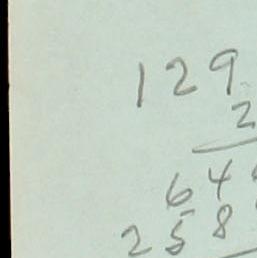 129
2
64
258